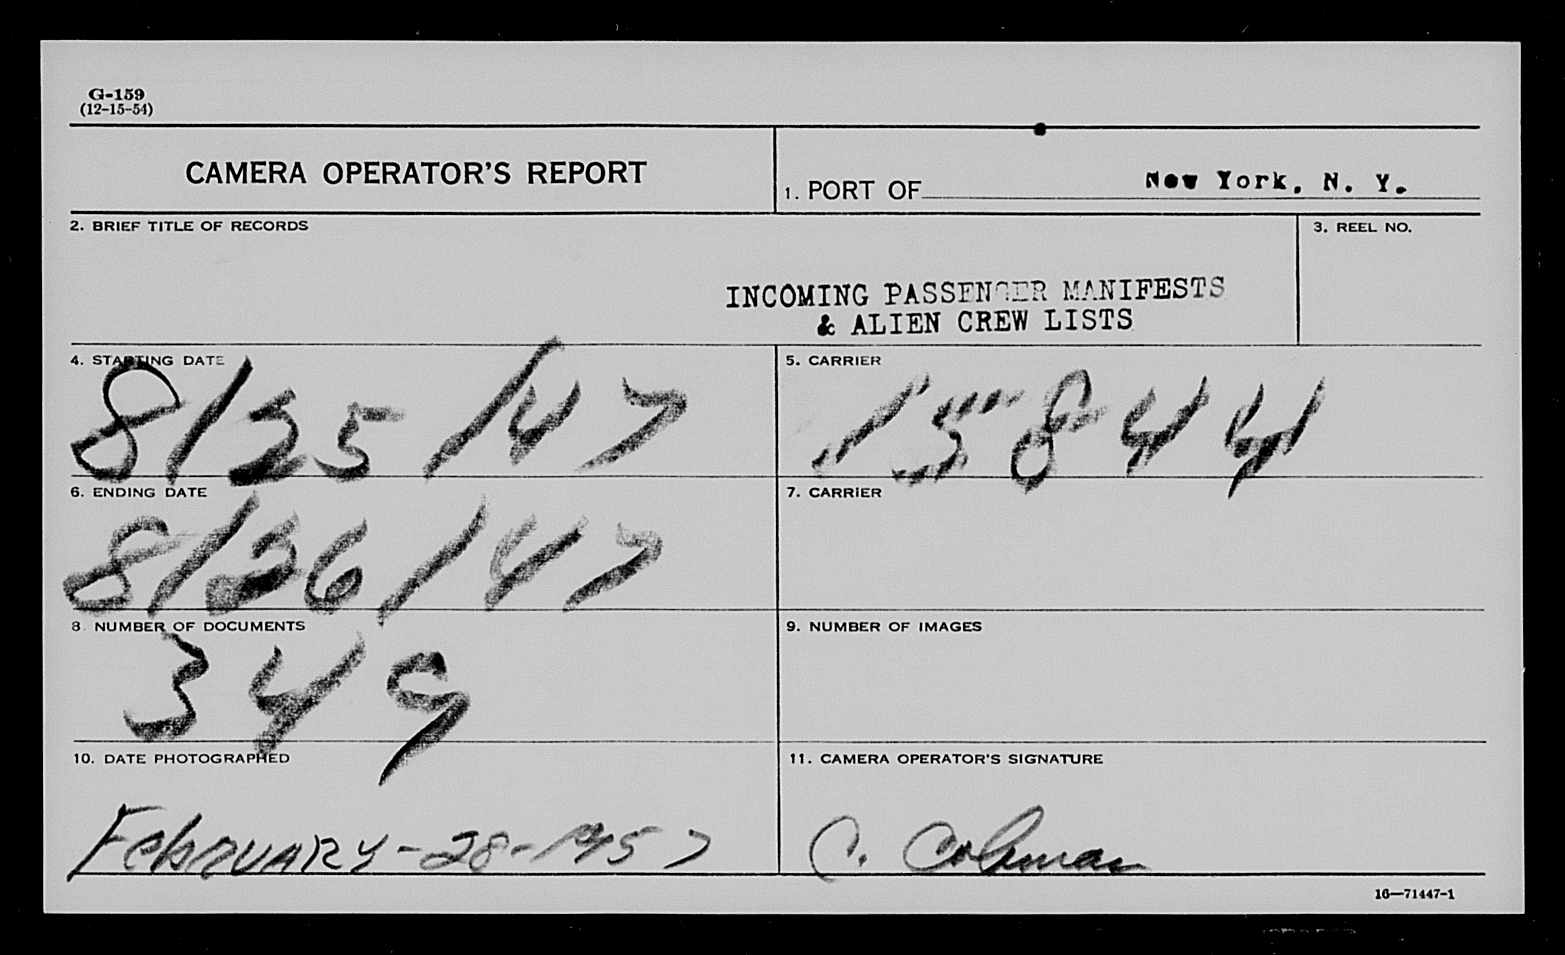 G-159
(12-15-54)
CAMERA OPERATOR'S REPORT
1. PORT OF New York, N. Y.
2. BRIEF TITLE OF RECORDS
INCOMING PASSENGER MANIFESTS
& ALIEN CREW LISTS
3. REEL NO.
4. STARTING DATE
8/25/47
5. CARRIER
15844
6. ENDING DATE
8/26/47
7. CARRIER
8. NUMBER OF DOCUMENTS
349
9. NUMBER OF IMAGES
10. DATE PHOTOGRAPHED
February-28-1957
11. CAMERA OPERATOR'S SIGNATURE
C. Coleman
16—71447-1